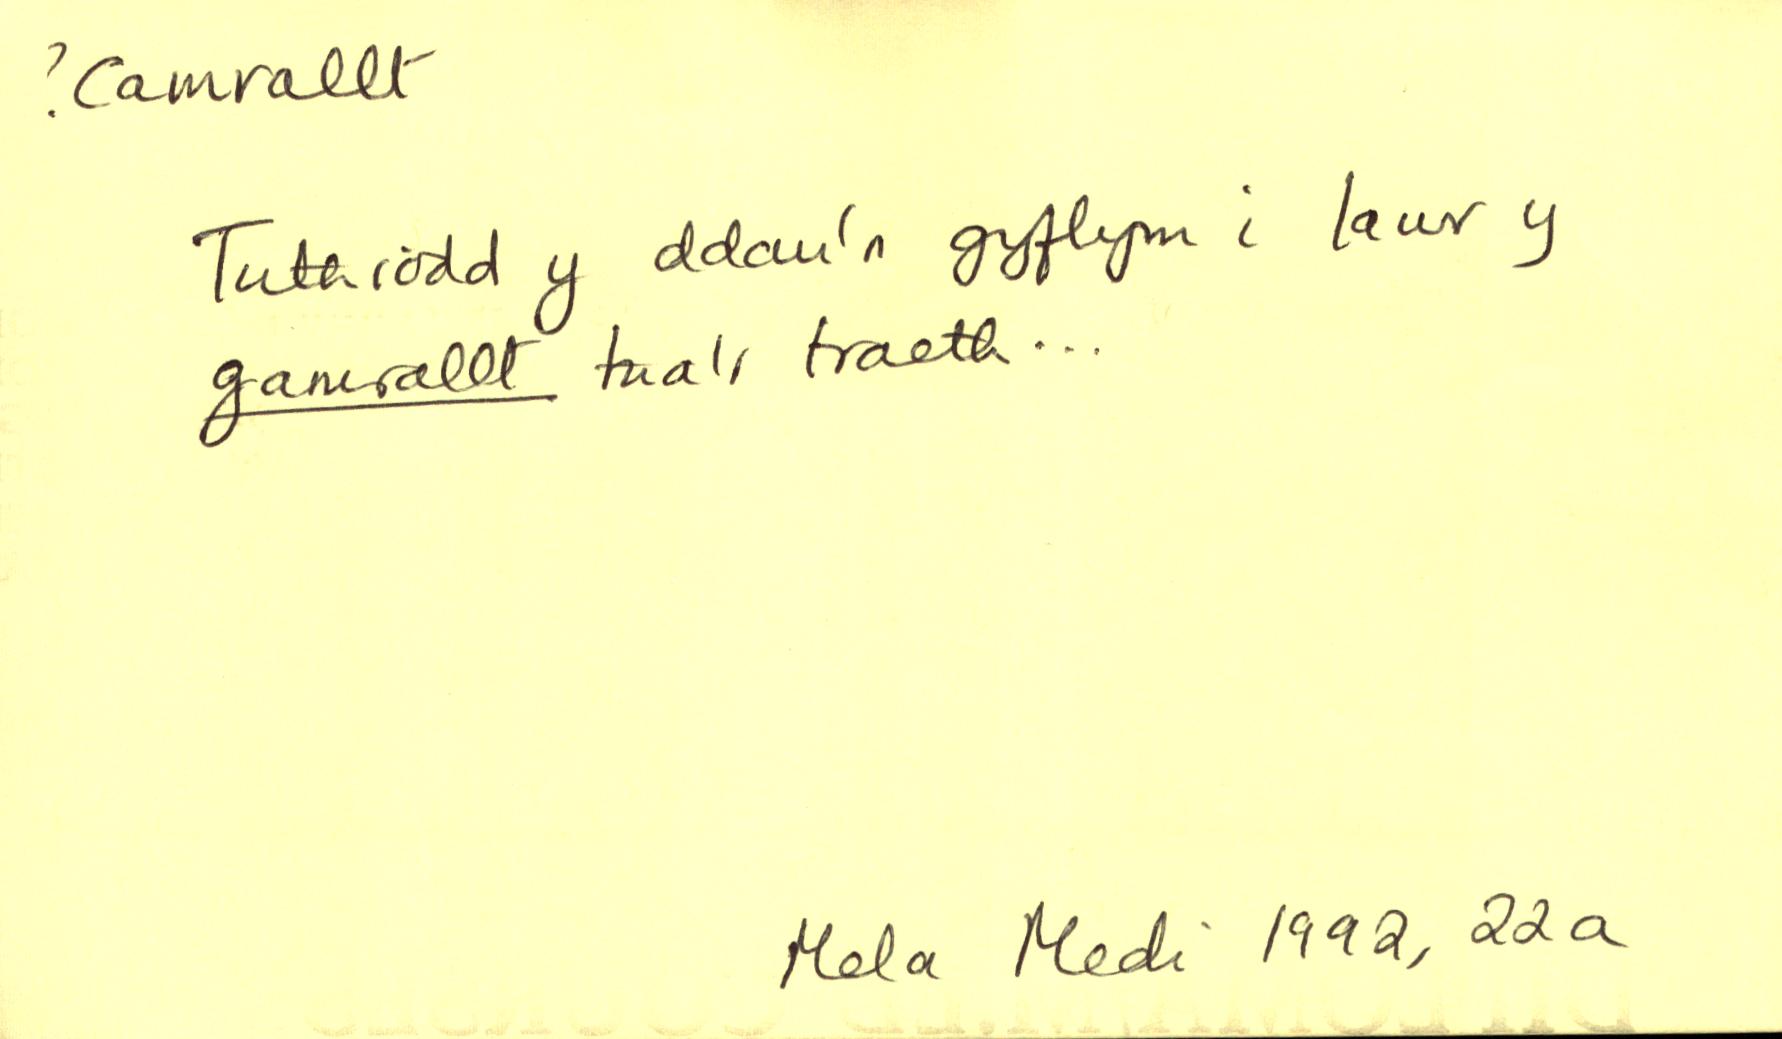 ?Camrallt
Tuthiodd y ddau'n gyflym i lawr y
gamrallt tua'r traeth...
Mela Medi 1992, 22a